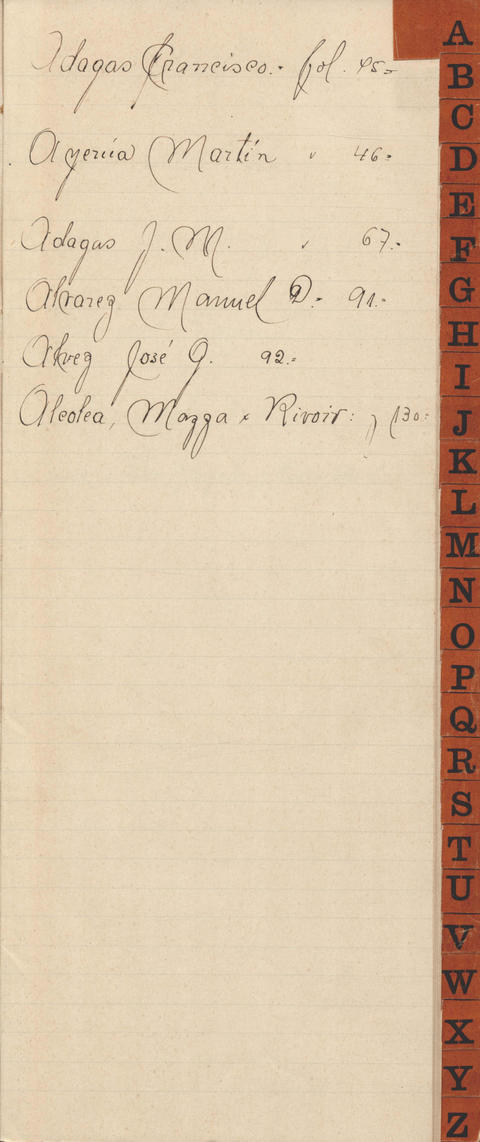 Adagas Francisco.- fol. 45=
Ayerúa Martín " 46=
Adagas J. M. " 67.-
Alvarez Manuel D.- 91.-
Alvez José G. 92.=
Alcolea, Mazza x Rivoir: 130=
A
B
C
D
E
F
G
H
I
J
K
L
M
N
O
P
Q
R
S
T
U
V
W
X
Y
Z